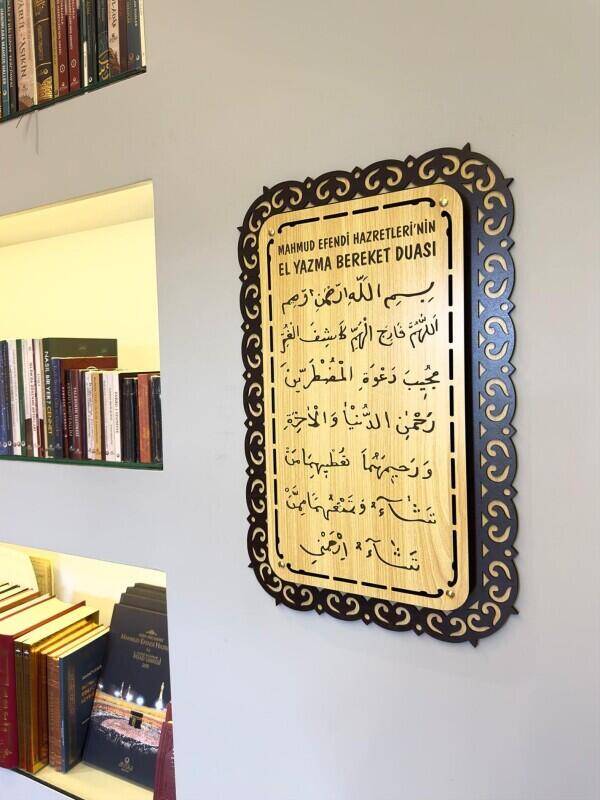 MAHMUD EFENDİ HAZRETLERİ'NİN
EL YAZMA BEREKET DUASI
بِسْمِ اللَّهِ الرَّحْمَنِ الرَّحِيمِ
اَللّٰهُمَّ فَارِجَ الْهَمِّ كَاشِفَ الْغَمِّ
مُجِيبَ دَعْوَةِ الْمُضْطَرِّينَ
رَحْمٰنَ الدُّنْيَا وَالْاٰخِرَةِ
وَرَحِيمَهُمَا تُعْطِيهِمَا مَنْ
تَشَاءُ وَتَمْنَعُهُمَا مِمَّنْ
تَشَاءُ اِرْحَمْنِي
NASIL BİR YER? CENNET
MAHMUD EFENDİ HAZ